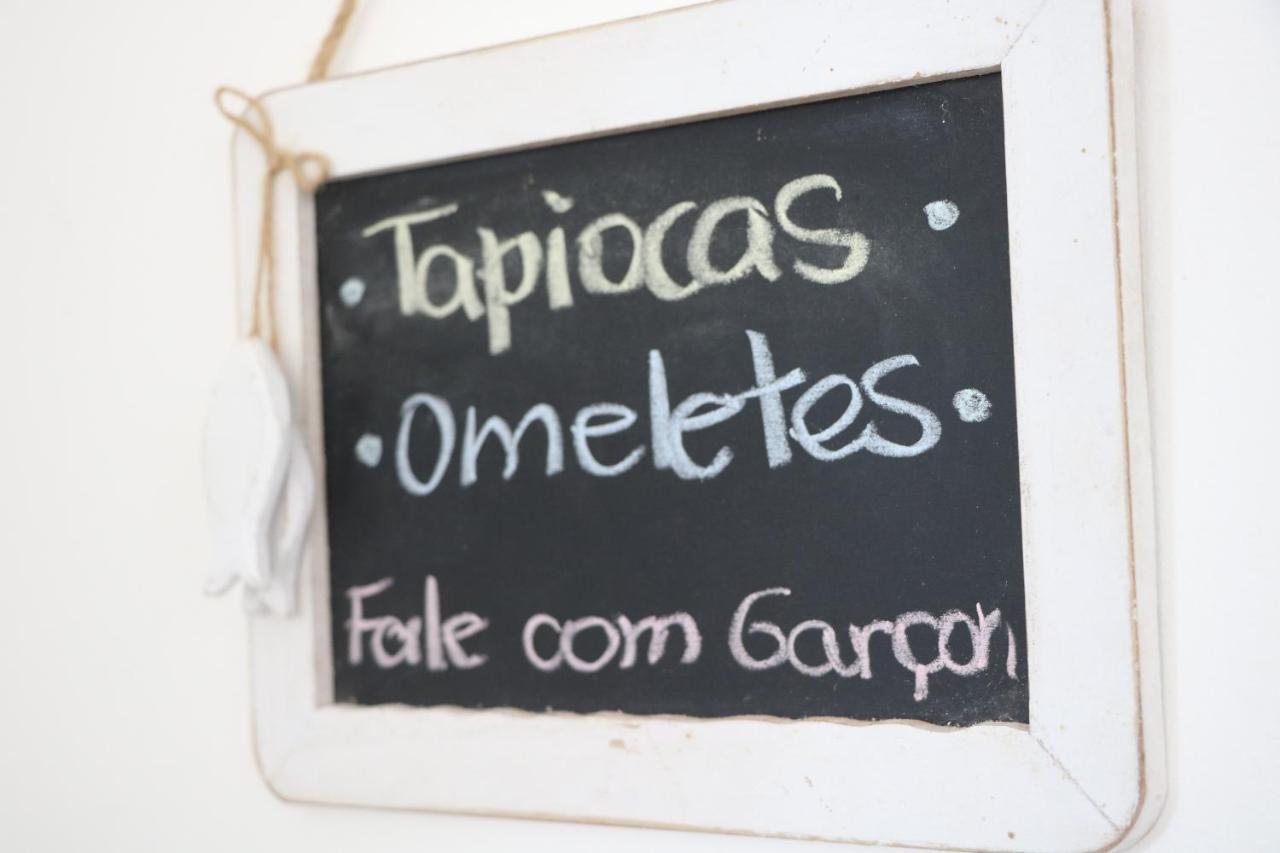 • Tapiocas •
• Omeletes •
Fale com Garçon